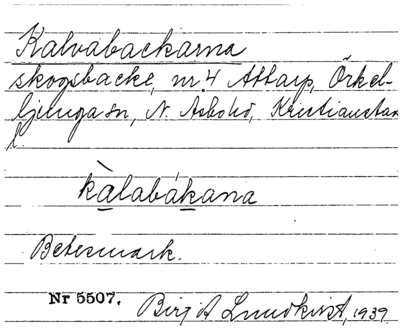 Kalvabackarna
skogsbacke, nr 4 Attarp, Örkel-
ljunga sn, N. Åsbo hd, Kristianstads
l.
kàlabákana
Betesmark.
Nr 5507. Birgit Lundkvist, 1939